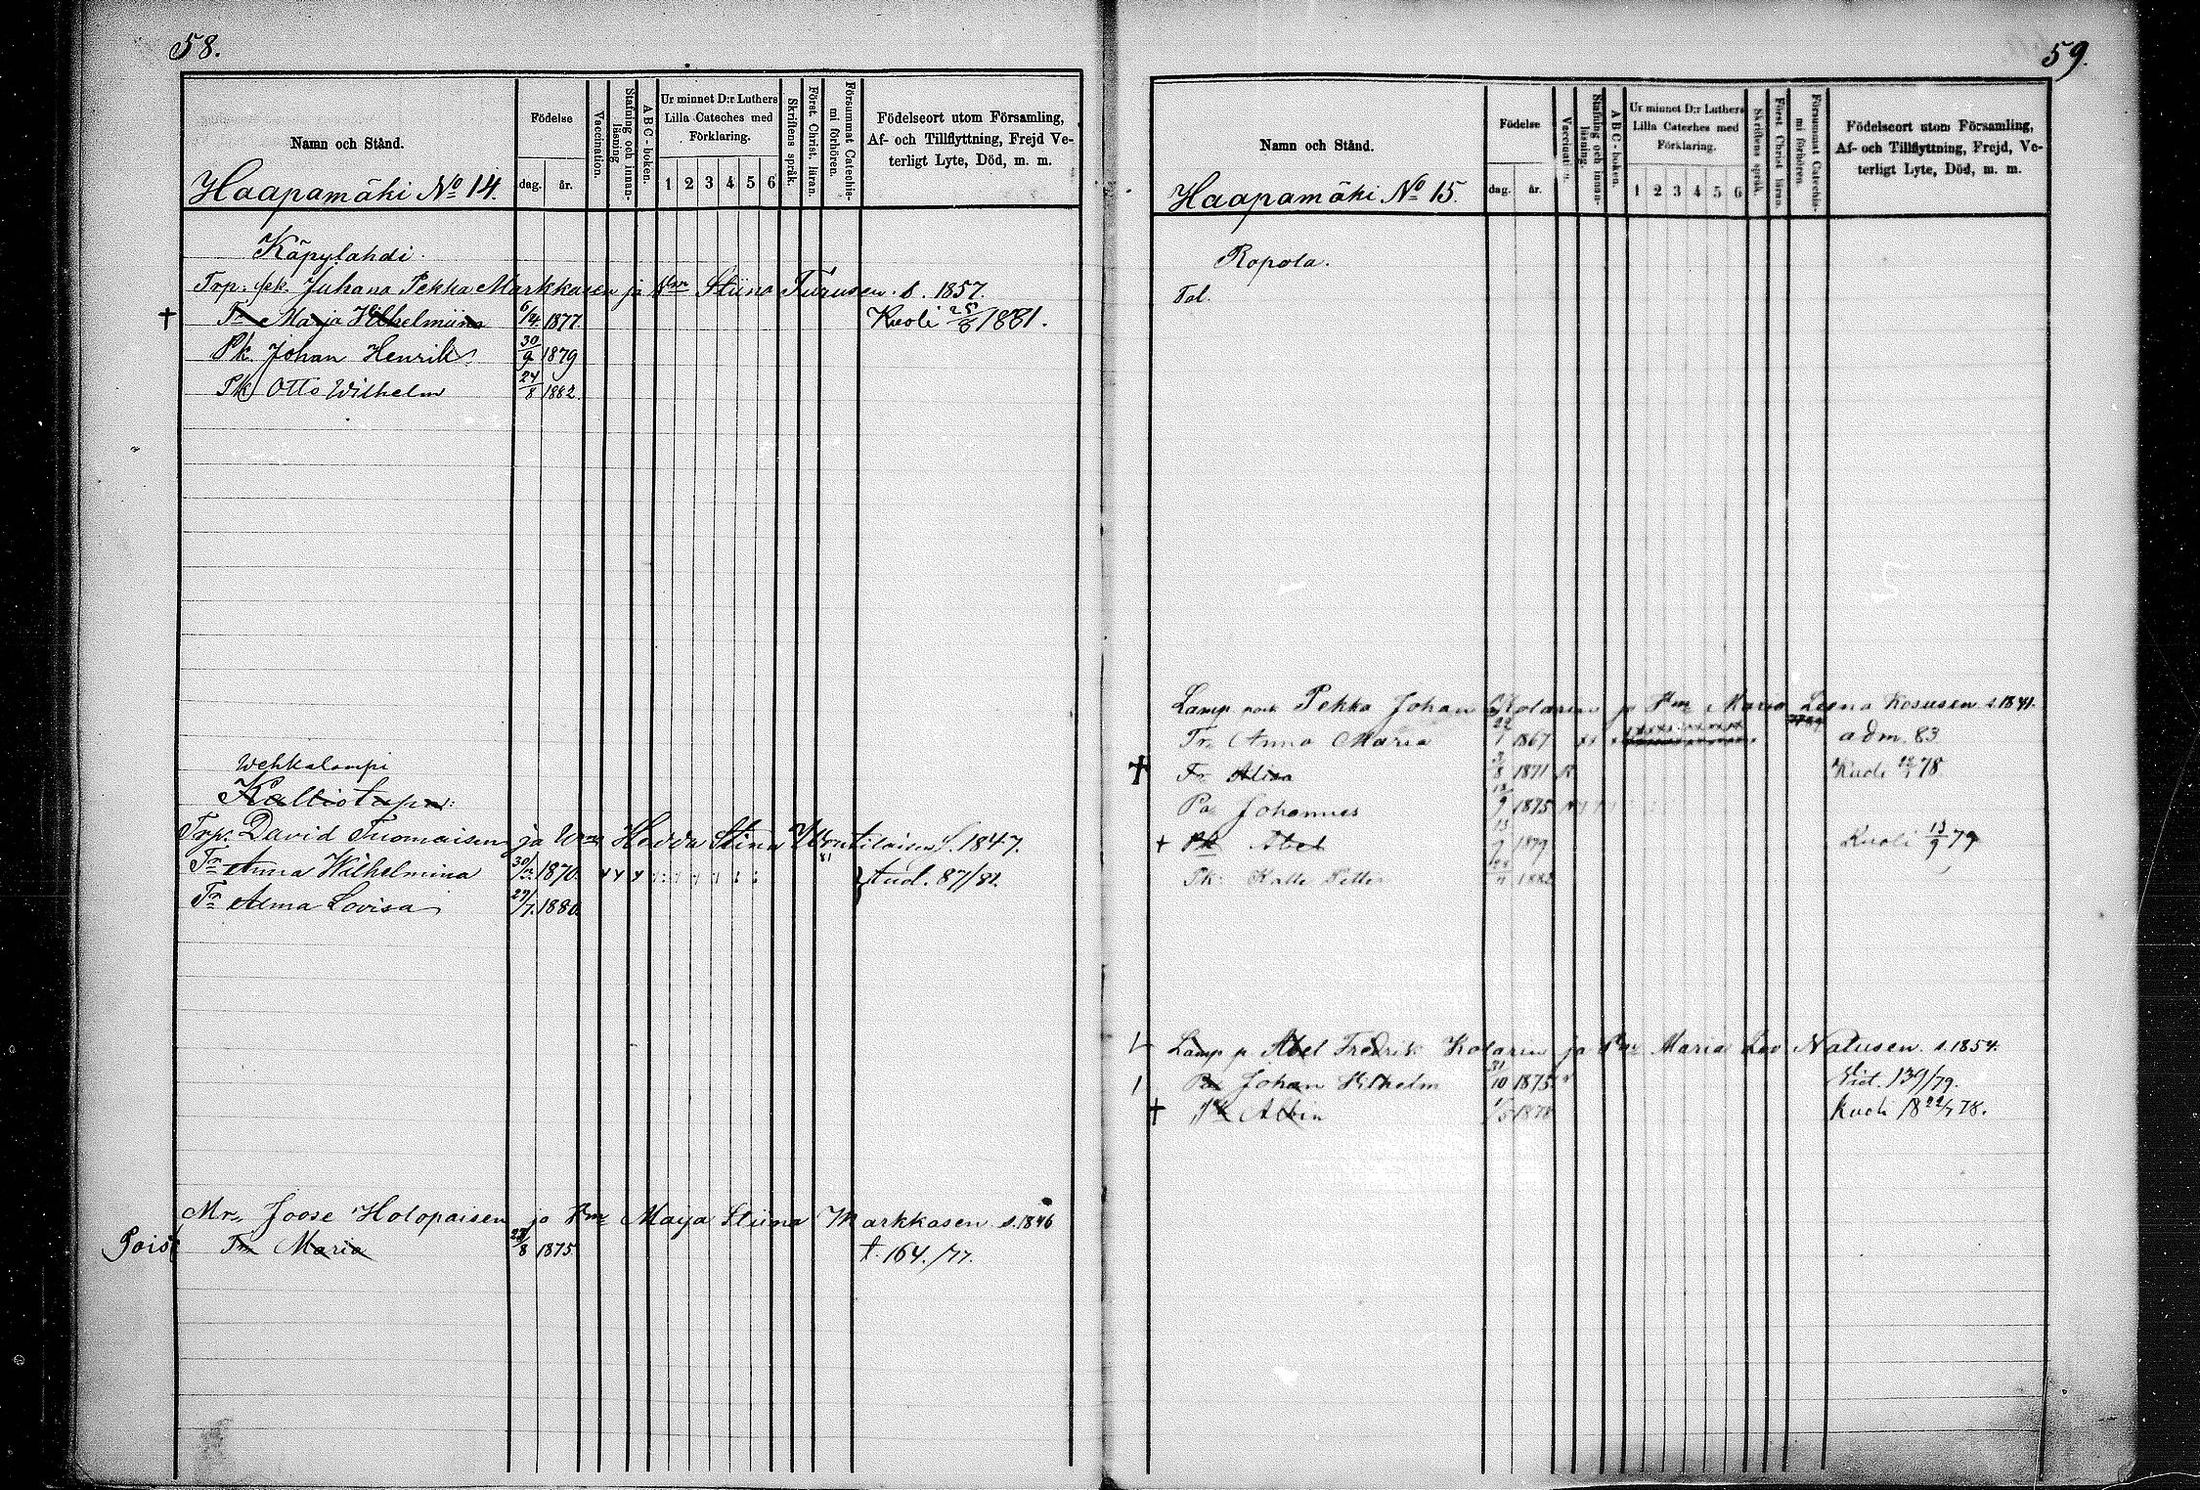 58.
Namn och Stånd.
Födelse
dag. år.
Vaccination.
Stafning och innanläsning
ABC-boken.
Ur minnet D:r Luthers Lilla Cateches med Förklaring.
1 2 3 4 5 6
Skriftens språk.
Först. Christ. läran.
Försummat Catechismi förhören.
Födelseort utom Församling, Af- och Tillflyttning, Frejd Veterligt Lyte, Död, m. m.
Haapamäki No 14.
Käpylahdi.
Trp. pk. Juhana Pekka Markkasen ja Vm Stiina Turusen. s. 1857.
† Tr Marja Wilhelmiina 6/12 1877. Kuoli 25/8 1881.
Pk. Johan Henrik 30/9 1879
Pk Otto Wilhelm 24/8 1882.
Wehkalampi
Kalliotupa:
Trp. David Tuomaisen ja Wm Hedda Stina S. 1847.
Tr Anna Wilhelmina 1870. 81 87/82.
Tr Alma Lovisa 27/7. 1880.
Mr. Joose Holopaisen ja Vm Maija Stiina Markkasen s. 1846
Pois Tr Maria 8 1875. t. 164./77.
59.
Namn och Stånd.
Födelse
dag. år.
Vaccination.
Stafning och innanläsning.
ABC-boken.
Ur minnet D:r Luthers Lilla Cateches med Förklaring.
1 2 3 4 5 6
Skriftens språk
Först. Christ läran.
Försummat Catechismi förhören.
Födelseort utom Församling, Af- och Tillflyttning, Frejd, Veterligt Lyte, Död, m. m.
Haapamäki No 15.
Ropola.
Tal.
Lamp. Pekka Johan Kolarin ja Vm Maria Leena Kosusen s. 1841.
Tr. Anna Maria 22/1 1867 adm. 83
† Tr Alisa 8 1871 Kuoli 78
Po. Johannes 9 1875
† Pk Abel 13/9 1879 Kuoli 13/9 79
Pk. Kalle Petter 1882
Lamp p Abel Fredrik Kolarin ja Vm Maria Lov Natusen. s. 1854.
Po Johan Wilhelm 31/10 1875 139/79.
† Pk Albin 1878 Kuoli 18 22/7 78.